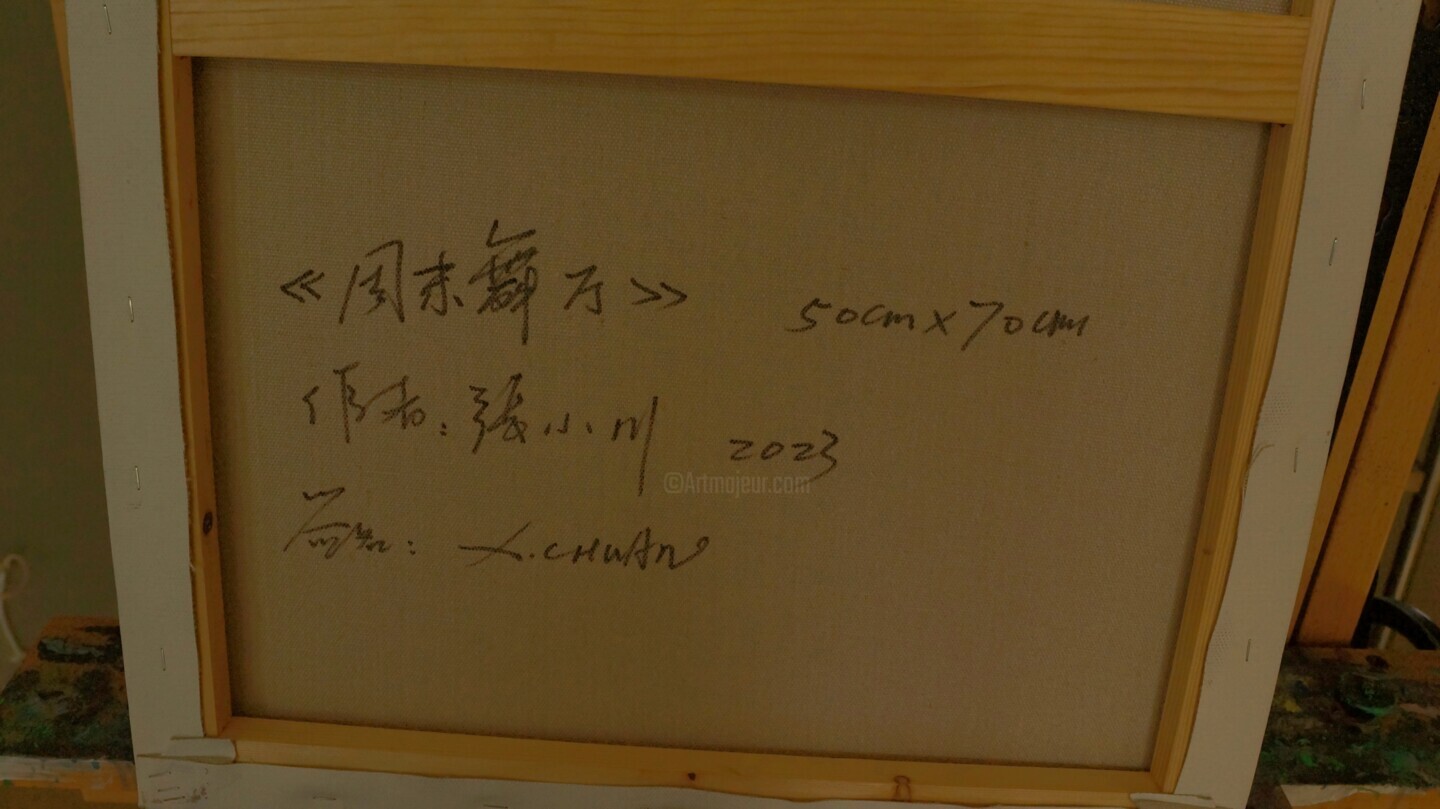 《周末舞厅》 50cm×70cm
作者:張小川 2023
©Artmajeur.com
签名: X.CHUAN